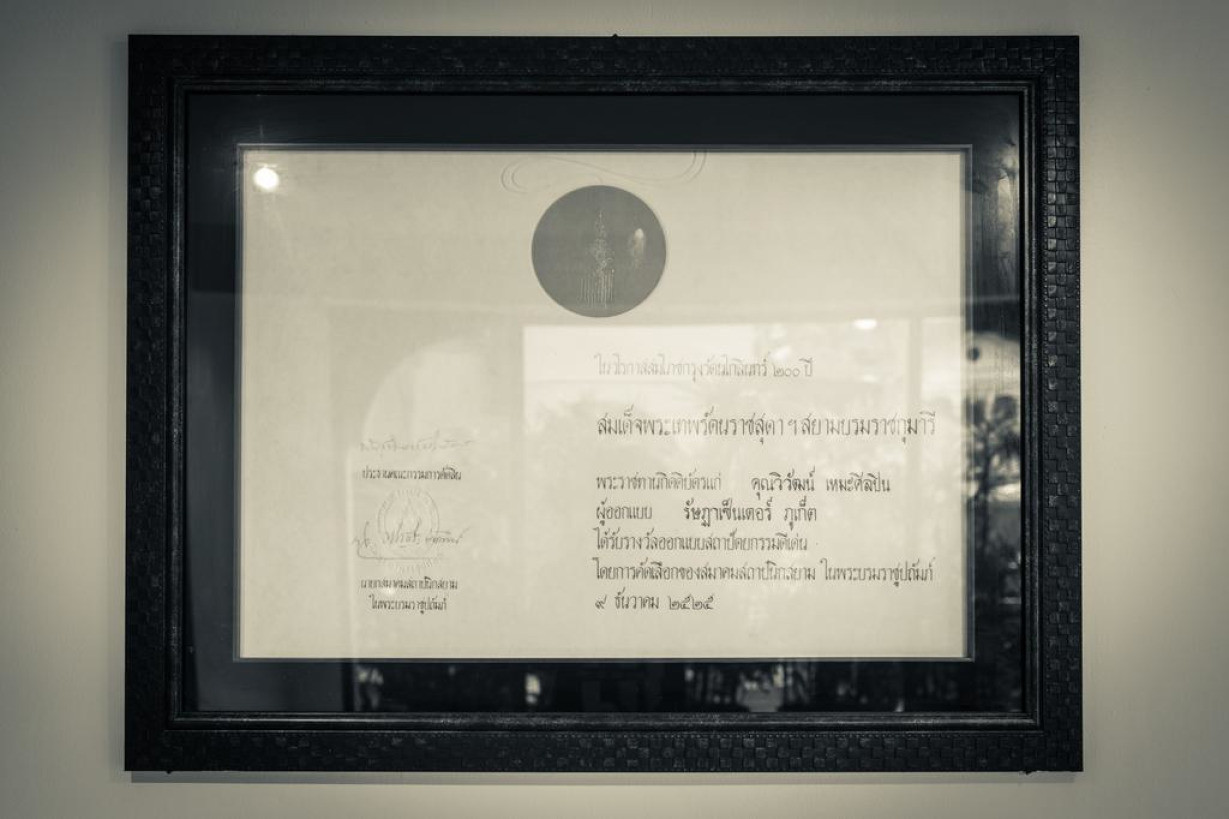 ในวโรกาสสมโภชกรุงรัตนโกสินทร์ ๒๐๐ ปี
สมเด็จพระเทพรัตนราชสุดา ฯ สยามบรมราชกุมารี
พระราชทานกิตติบัตรแก่ คุณวิวัฒน์ เหมะศิลปิน
ผู้ออกแบบ รัษฎาเซ็นเตอร์ ภูเก็ต
ได้รับรางวัลออกแบบสถาปัตยกรรมดีเด่น
โดยการคัดเลือกของสมาคมสถาปนิกสยาม ในพระบรมราชูปถัมภ์
๙ ธันวาคม ๒๕๒๕
ประธานคณะกรรมการตัดสิน
นายกสมาคมสถาปนิกสยาม
ในพระบรมราชูปถัมภ์